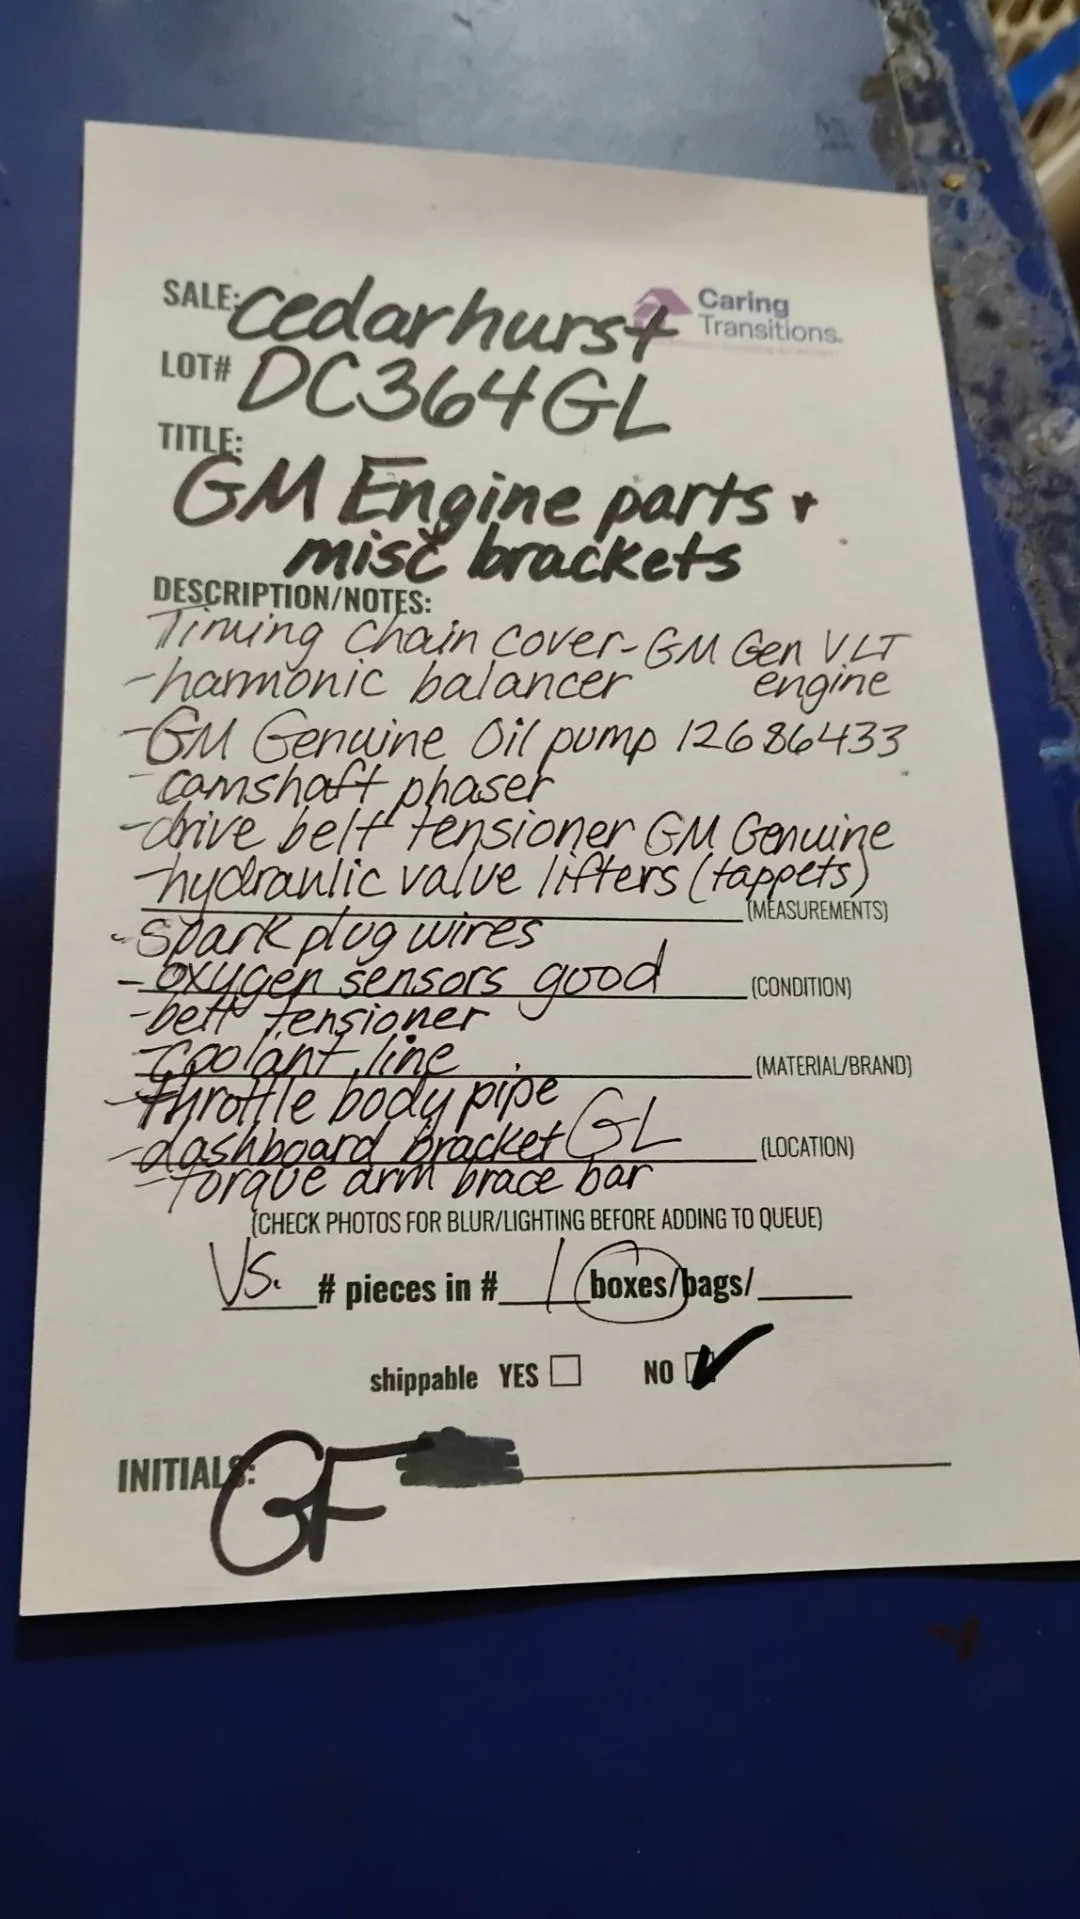 SALE: Cedarhurst
Caring
Transitions.
LOT# DC364GL
TITLE:
GM Engine parts +
misc brackets
DESCRIPTION/NOTES:
Timing chain cover - GM Gen V LT
engine
- harmonic balancer
- GM Genuine Oil pump 12686433
- camshaft phaser
- drive belt tensioner GM Genuine
- hydraulic valve lifters (tappets)
(MEASUREMENTS)
- spark plug wires
- oxygen sensors good (CONDITION)
- belt tensioner
- coolant line (MATERIAL/BRAND)
- throttle body pipe
- dashboard bracket GL (LOCATION)
- torque arm brace bar
(CHECK PHOTOS FOR BLUR/LIGHTING BEFORE ADDING TO QUEUE)
VS. # pieces in # 1 boxes/bags/
shippable YES ☐ NO ✔
INITIALS: GF